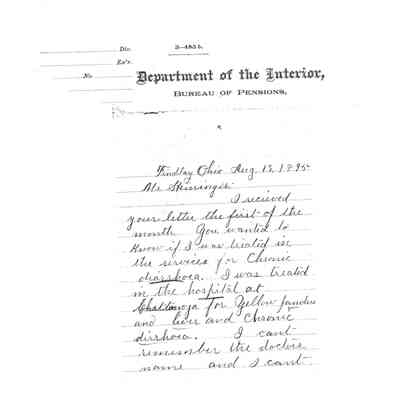 Div.
3—4851.
Ex'r.
No
Department of the Interior,
BUREAU OF PENSIONS,
Findlay Ohio Aug. 13, 1895
Mr
I recieved
your letter the first of the
month You wanted to
Know if I was treated in
the services for Chronic
diarrhoea. I was treated
in the hospital at
for Yellow
and liver and Chronic
dirrhoea. I cant
remember the doctors
name and I cant